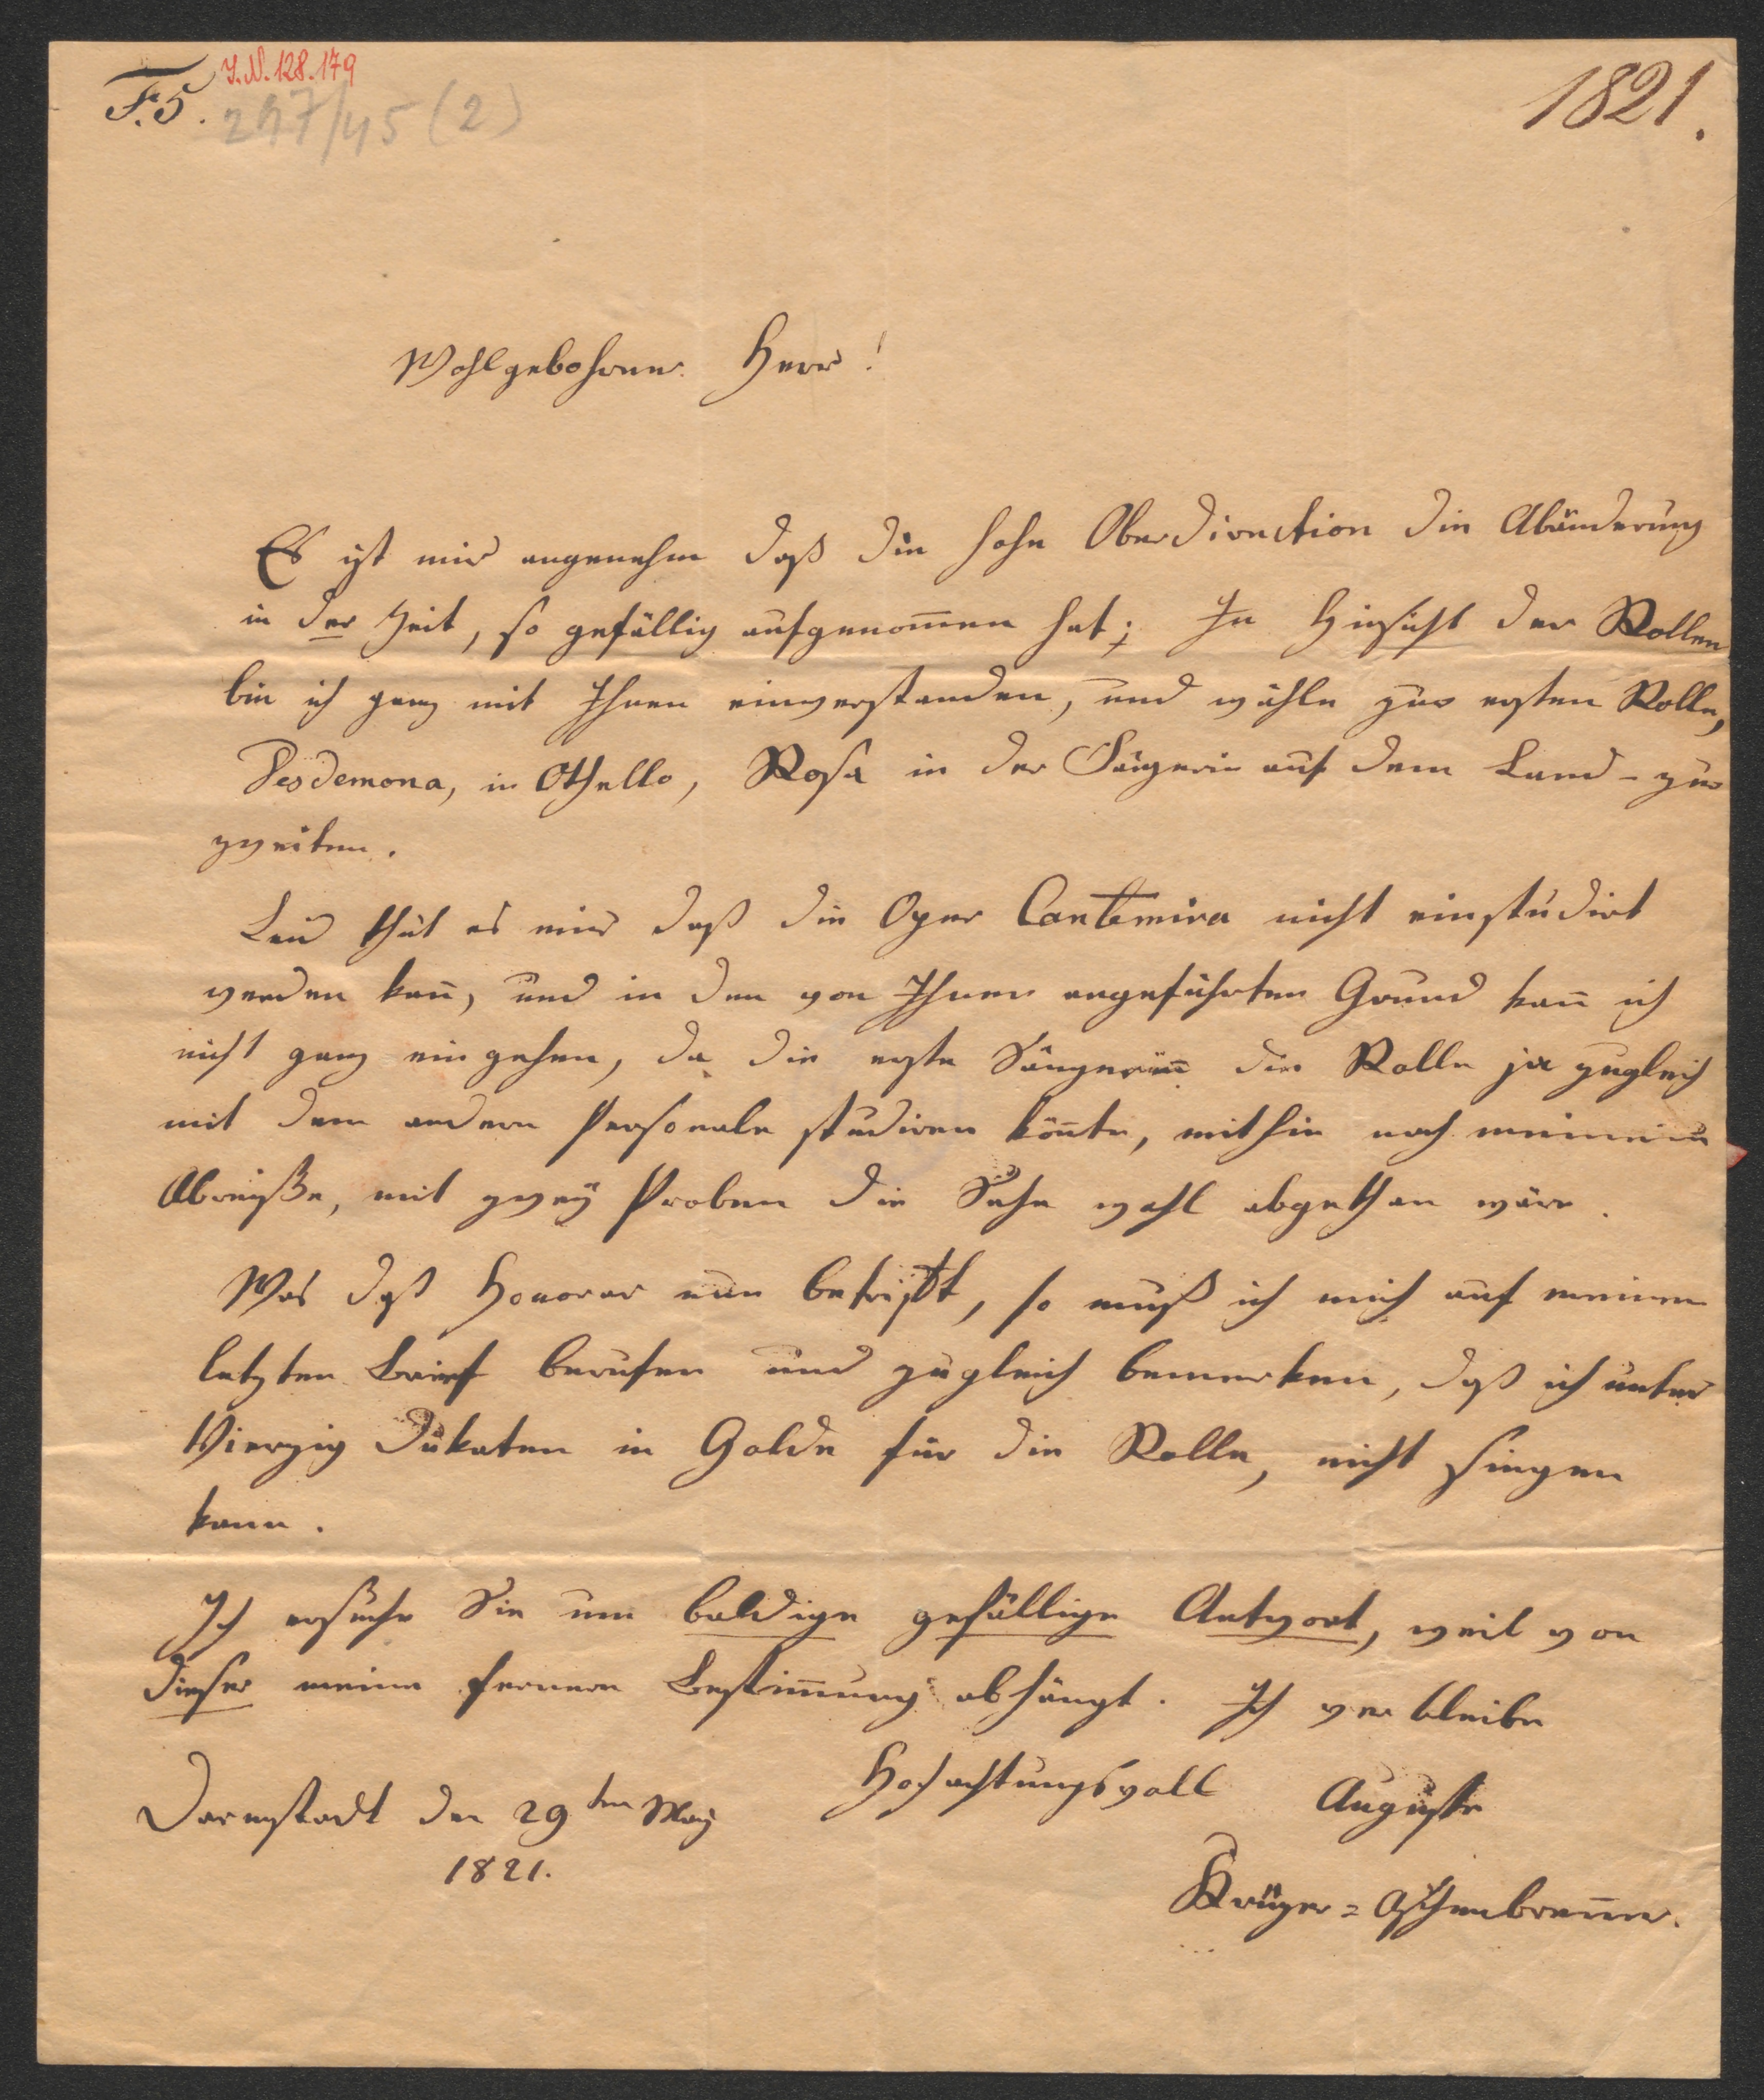 F. 5. I.N. 128.179
247/45 (2)
1821.
Wohlgebohrner Herr!
Es ist mir angenehm daß die hohe Oberdirection die Abänderung
in der Zeit, so gefällig aufgenom̄en hat; In Hinsicht der Rollen
bin ich ganz mit Ihnen einverstanden, und wähle zur ersten Rolle,
Desdemona, in Othello, Rosa in der Sängerin auf dem Land - zur
zweiten.
Leid thut es mir daß die Oper Cantemira nicht einstudirt
werden kan̄, und in den von Ihnen angeführten Grund kan̄ ich
nicht ganz eingehen, da die erste Sängerin̄ die Rolle ja zugleich
mit dem andern Personale studiren kön̄te, mithin nach meiner
Abreiße, mit zwey Proben die Sache wohl abgethan wäre.
Was daß Honorar nun betrift, so muß ich mich auf meinen
letzten Brief berufen und zugleich bemerken, daß ich unter
Vierzig Dukaten in Golde für die Rolle, nicht singen
kann.
Ich ersuche Sie um baldige gefällige Antwort, weil von
dieser meine fernere Bestim̄ung abhängt. Ich verbleibe
Hochachtungsvoll Auguste
Darmstadt den 29ten May
1821.
Krüger = Aschenbren̄er.